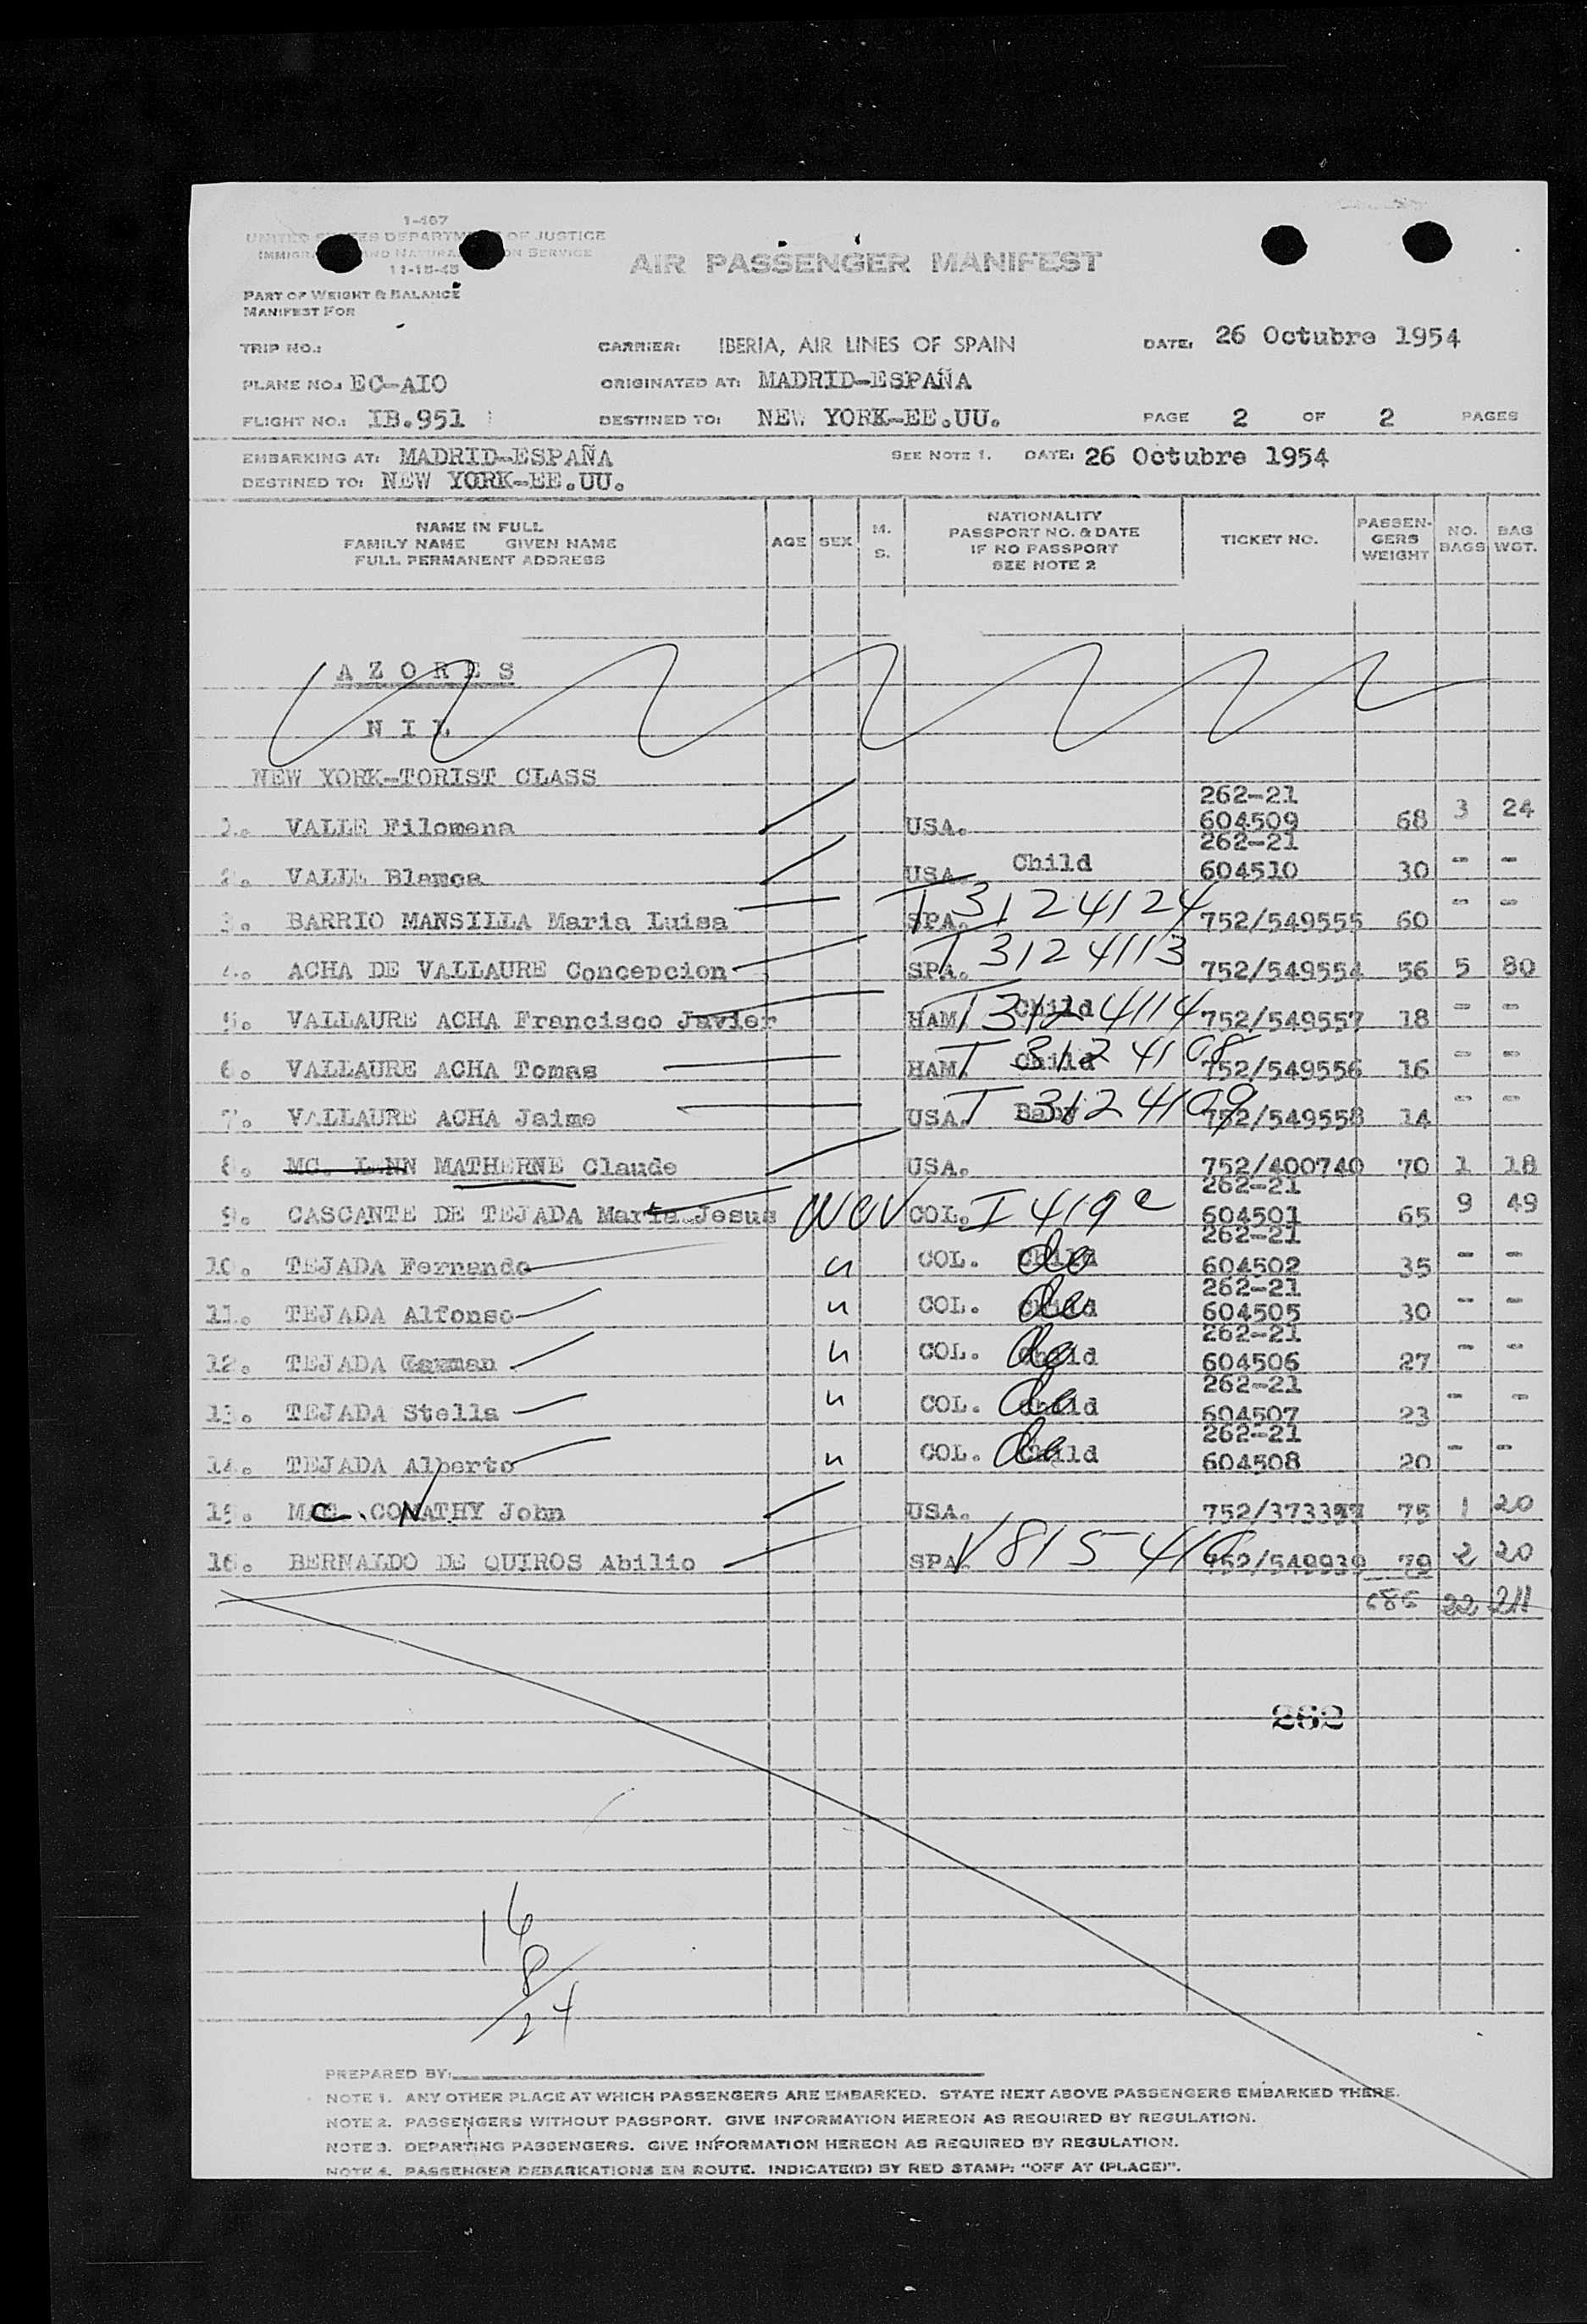 1-467
UNITED STATES DEPARTMENT OF JUSTICE
IMMIGRATION AND NATURALIZATION SERVICE
11-18-48
AIR PASSENGER MANIFEST
PART OF WEIGHT & BALANCE
MANIFEST FOR
TRIP NO.: CARRIER: IBERIA, AIR LINES OF SPAIN DATE: 26 Octubre 1954
PLANE NO.: EC-AIO ORIGINATED AT: MADRID-ESPAÑA
FLIGHT NO.: IB.951 DESTINED TO: NEW YORK-EE.UU. PAGE 2 OF 2 PAGES
EMBARKING AT: MADRID-ESPAÑA SEE NOTE 1. DATE: 26 Octubre 1954
DESTINED TO: NEW YORK-EE.UU.
NAME IN FULL
FAMILY NAME GIVEN NAME
FULL PERMANENT ADDRESS
AGE SEX
M.
S.
NATIONALITY
PASSPORT NO. & DATE
IF NO PASSPORT
SEE NOTE 2
TICKET NO.
PASSEN-
GERS
WEIGHT
NO.
BAGS
BAG
WGT.
A Z O R E S
N I L
NEW YORK-TORIST CLASS
262-21
1. VALLE Filomena USA. 604509 68 3 24
262-21
2. VALLE Blanca USA. Child 604510 30 - -
3. BARRIO MANSILLA Maria Luisa SPA. T 3124124 752/549555 60 - -
4. ACHA DE VALLAURE Concepcion SPA. T 3124113 752/549554 56 5 80
5. VALLAURE ACHA Francisco Javier HAM. Child T 3124114 752/549557 18 - -
6. VALLAURE ACHA Tomas HAM. Child T 3124108 752/549556 16 - -
7. VALLAURE ACHA Jaime USA. Baby T 3124109 752/549558 14 - -
8. MC. NN MATHERNE Claude USA. 752/400740 70 1 18
262-21
9. CASCANTE DE TEJADA Maria Jesus COL. I 419 604501 65 9 49
262-21
10. TEJADA Fernando " COL. Child do 604502 35 - -
262-21
11. TEJADA Alfonso " COL. Child do 604505 30 - -
262-21
12. TEJADA " COL. Child do 604506 27 - -
262-21
13. TEJADA Stella " COL. Child do 604507 23 - -
262-21
14. TEJADA Alberto " COL. Child do 604508 20 - -
15. MAC. CONATHY John USA. 75 1 20
16. BERNALDO DE QUIROS Abilio SPA. V 815 752/549939 79 2 20
686 22 211
262
16
8
24
PREPARED BY:
NOTE 1. ANY OTHER PLACE AT WHICH PASSENGERS ARE EMBARKED. STATE NEXT ABOVE PASSENGERS EMBARKED THERE.
NOTE 2. PASSENGERS WITHOUT PASSPORT. GIVE INFORMATION HEREON AS REQUIRED BY REGULATION.
NOTE 3. DEPARTING PASSENGERS. GIVE INFORMATION HEREON AS REQUIRED BY REGULATION.
NOTE 4. PASSENGER DEBARKATIONS EN ROUTE. INDICATE(D) BY RED STAMP: "OFF AT (PLACE)".